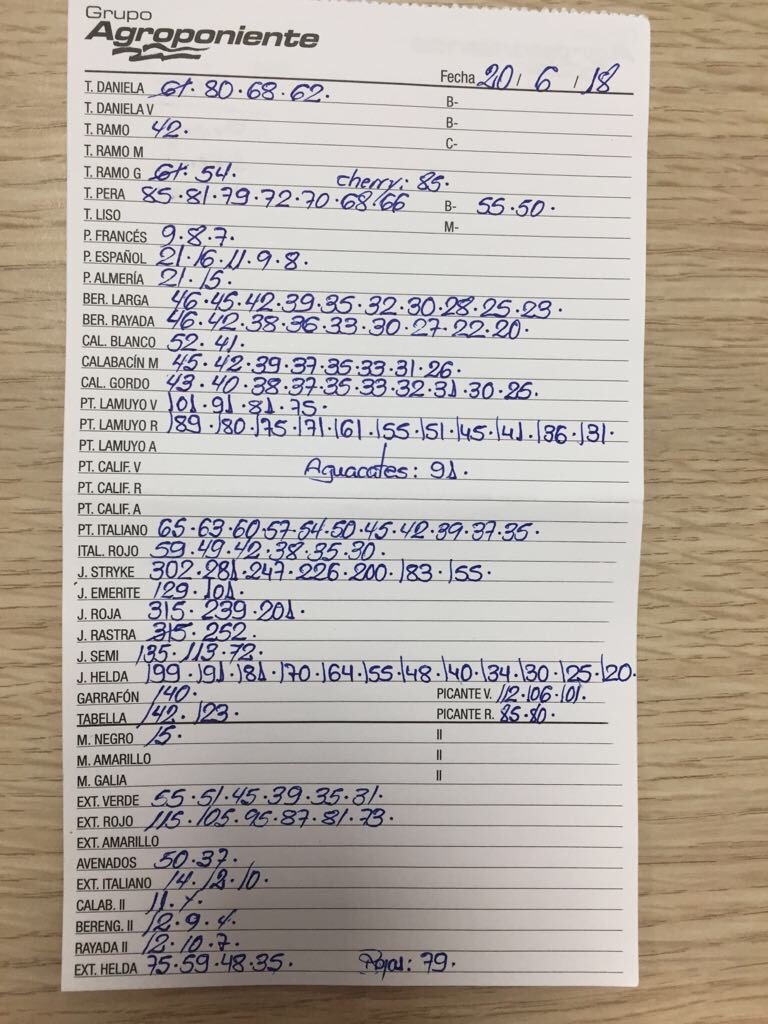 Grupo
Agroponiente
Fecha 20 / 6 / 18
T. DANELA 61. 80. 68. 62. B-
T. DANIELA V B-
T. RAMO 42. C-
T. RAMO M
T. RAMO G 61. 54. cherry: 85.
T. PERA 85. 81. 79. 72. 70. 68. 66 B- 55. 50.
T. LISO M-
P. FRANCÉS 9. 8. 7.
P. ESPAÑOL 21. 16. 11. 9. 8.
P. ALMERÍA 21. 15.
BER. LARGA 46. 45. 42. 39. 35. 32. 30. 28. 25. 23.
BER. RAYADA 46. 42. 38. 36. 33. 30. 27. 22. 20.
CAL. BLANCO 52. 41.
CALABACÍN M 45. 42. 39. 37. 35. 33. 31. 26.
CAL. GORDO 43. 40. 38. 37. 35. 33. 32. 31. 30. 25.
PT. LAMUYO V 101. 91. 81. 75.
PT. LAMUYO R 189. 180. 175. 171. 161. 155. 151. 145. 141. 136. 131.
PT. LAMUYO A
PT. CALIF. V Aguacates: 91.
PT. CALIF. R
PT. CALIF. A
PT. ITALIANO 65. 63. 60. 57. 54. 50. 45. 42. 39. 37. 35.
ITAL. ROJO 59. 49. 42. 38. 35. 30.
J. STRYKE 302. 281. 247. 226. 200. 183. 155.
J. EMERITE 129. 101.
J. ROJA 315. 239. 201.
J. RASTRA 315. 252.
J. SEMI 135. 113. 72.
J. HELDA 199. 191. 181. 170. 164. 155. 148. 140. 134. 130. 125. 120.
GARRAFÓN 140. PICANTE V. 112. 106. 101.
TABELLA 142. 123. PICANTE R. 85. 80.
M. NEGRO 15. II
M. AMARILLO II
M. GALIA II
EXT. VERDE 55. 51. 45. 39. 35. 31.
EXT. ROJO 115. 105. 95. 87. 81. 73.
EXT. AMARILLO
AVENADOS 50. 37.
EXT. ITALIANO 14. 12. 10.
CALAB. II 11. 7.
BERENG. II 12. 9. 4.
RAYADA II 12. 10. 7.
EXT. HELDA 75. 59. 48. 35. Rojas: 79.